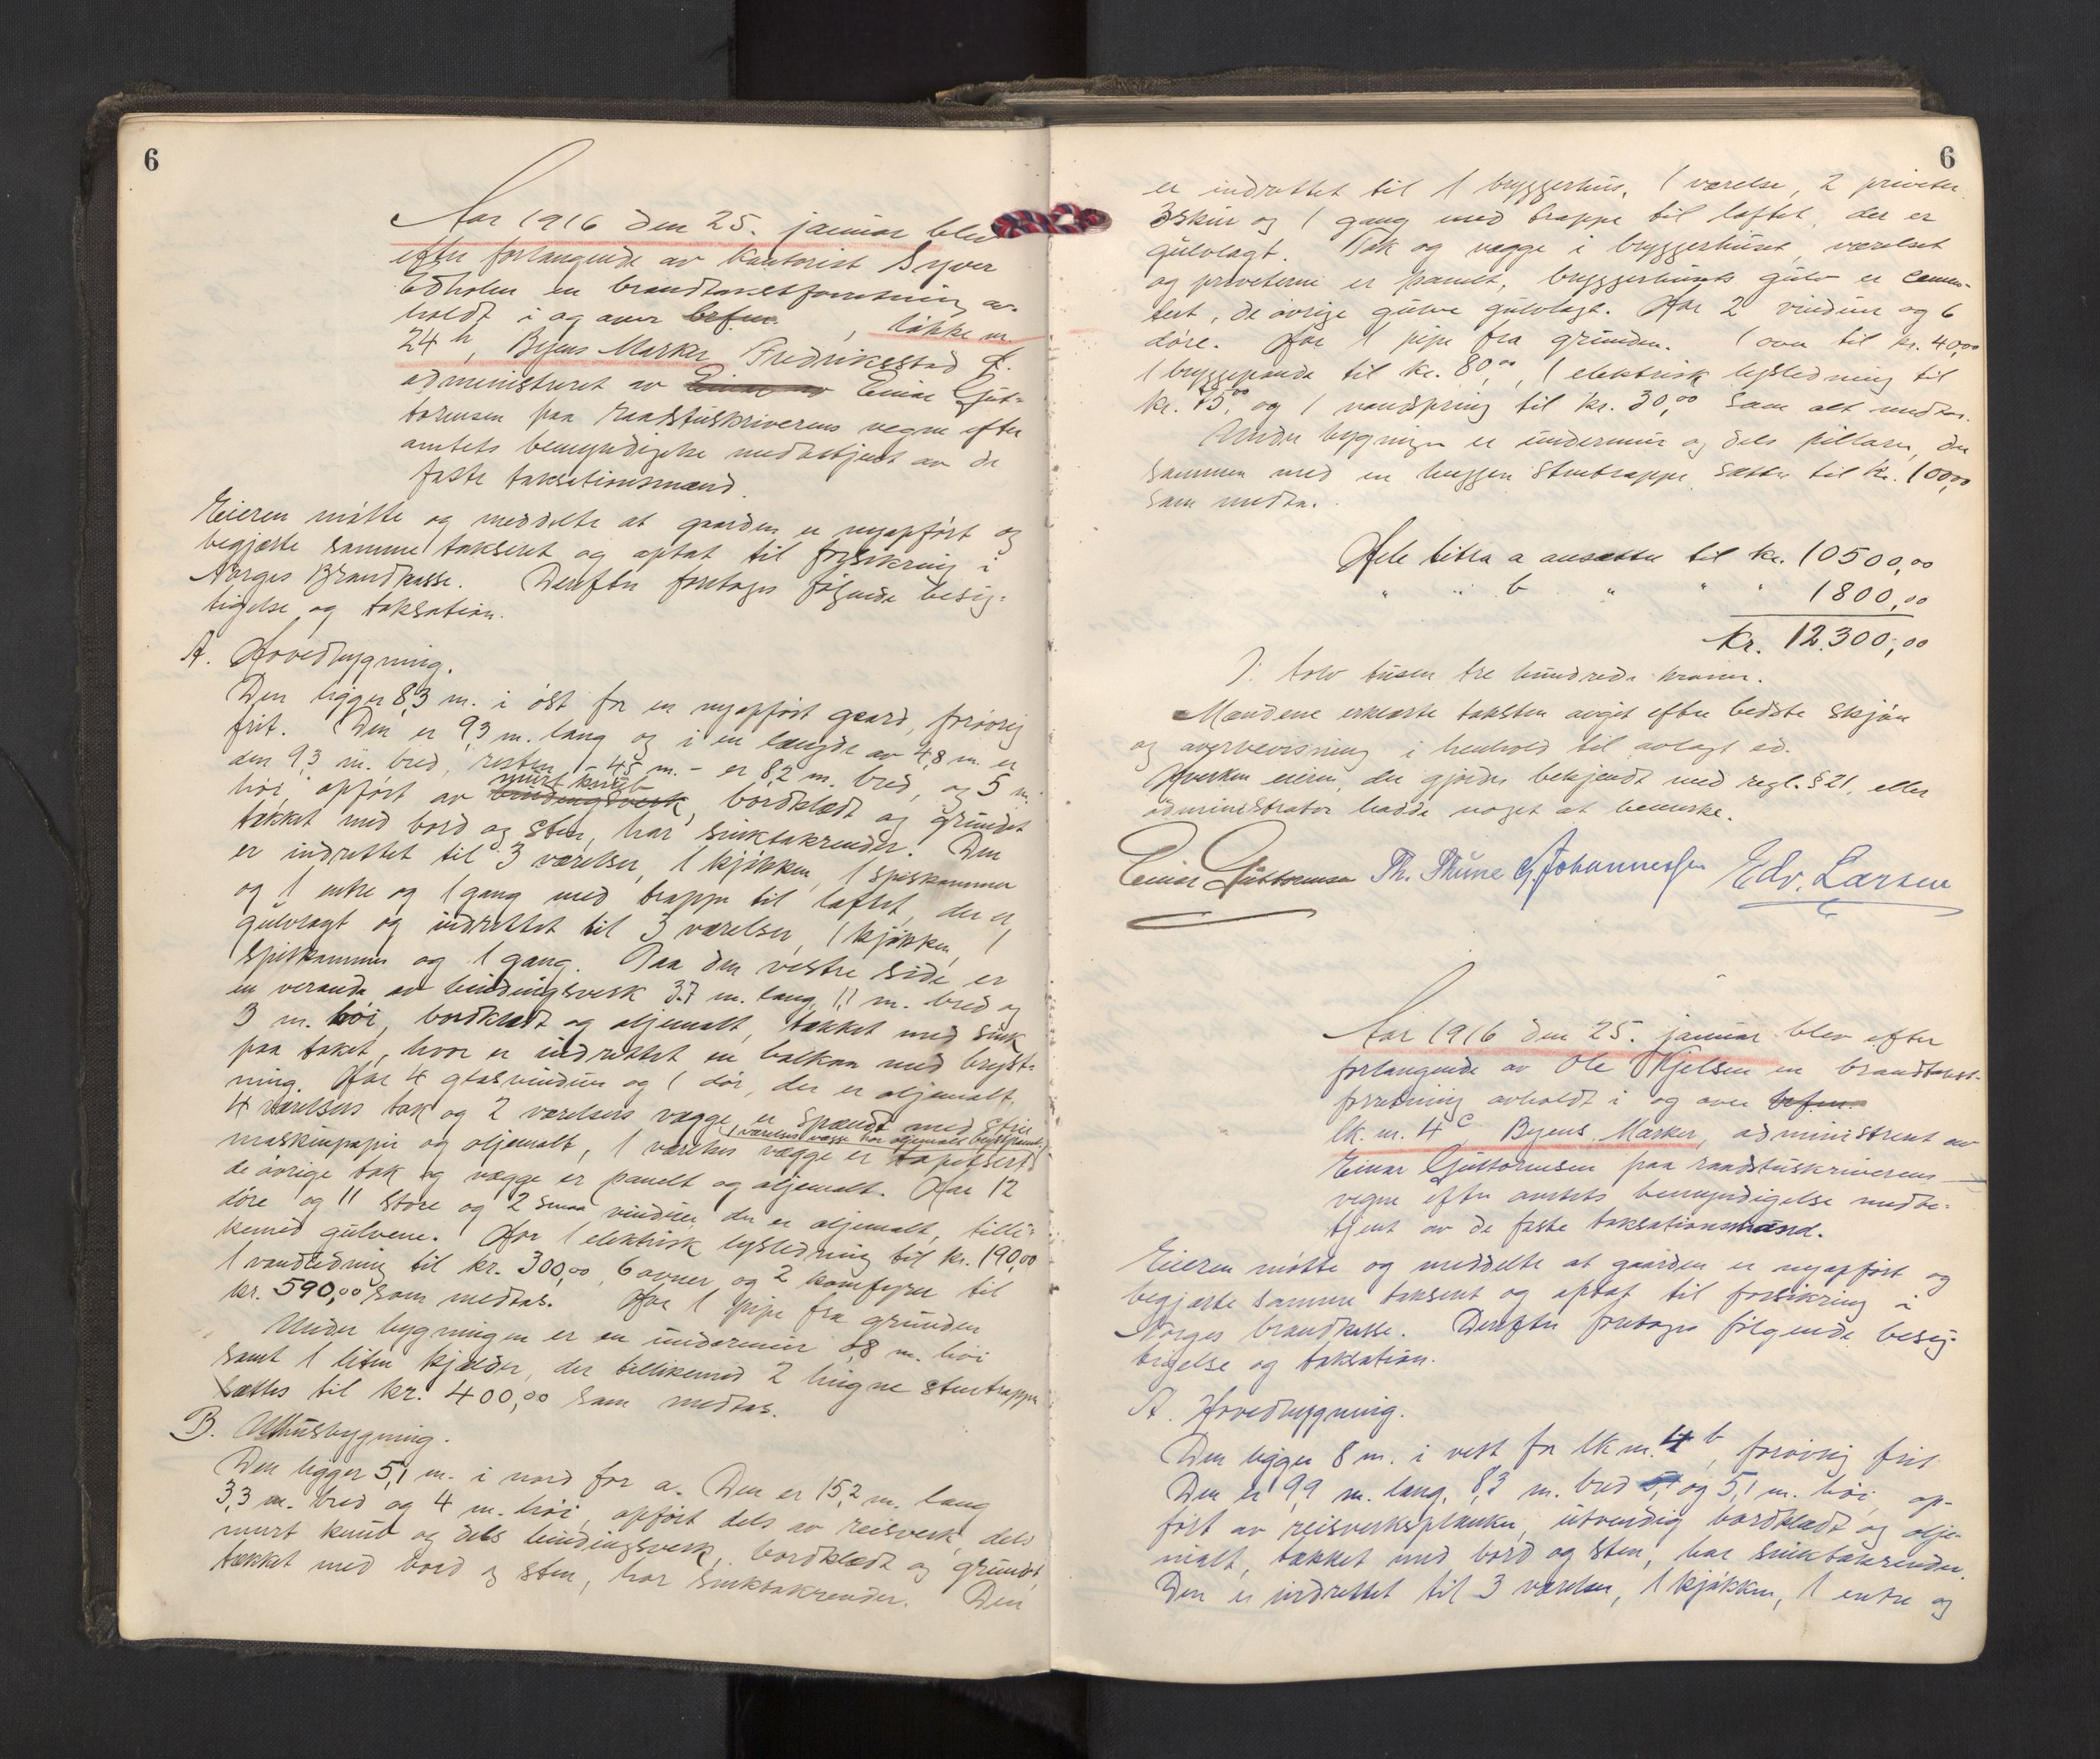 6
Aar 1916 den 25. januar blev
efter forlangende av kontorist Syver
Edholm en brandtakstforretning av-
holdt i og over brfm. , løkke nr.
24 h, Byens Marker, Fredrikstad
administreret av Einar av Einar Gut-
tormsen paa raadstuskriverens vegne efter
amtets bemyndigelse medbetjent av de
faste taksationsmænd.
Eieren møtte og meddelte at gaarden er nyopført og
begjærte samme takseret og optat til forsikring i
Norges Brandkasse. Derefter foretoges følgende besig-
tigelse og taksation.
A. Hovedbygning.
Den ligger 8,3 m. i øst for en nyopført gaard, forøvrig
frit. Den er 9,3 m. lang og i en længde av 4,8 m. er
den 9,3 m. bred, resten 4,5 m. - er 8,2 m. bred, og 5 m.
murt knub
høi, opført av bindingsverk, bordklædt og grundet
tækket med bord og sten, har sinktakrender. Den
er indrettet til 3 værelser, 1 kjøkken, 1 spiskammer
og 1 entre og 1 gang med trappe til loftet, der er
gulvlagt og indrettet til 3 værelser, 1 kjøkken, 1
spiskammer og 1 gang. Paa den vestre side er
en veranda av bindingsverk 3,7 m. lang, 1,1 m. bred og
3 m. høi, bordklædt og oljemalt, tækket med sink
paa taket, hvor er indrettet en balkon med bryst-
ning. Har 4 glasvinduer og 1 dør, der er oljemalt.
4 værelsers tak og 2 værelsers vægge er spændt med strie
1 værelses vægge har oljemalt brystpanel,
maskinpapir og oljemalt, 1 værelses vægge er tapetsert
de øvrige tak og vægge er panelt og oljemalt. Har 12
døre og 11 store og 2 smaa vinduer, der er oljemalt, tilli-
kemed gulvene. Har 1 elektrisk lysledning til kr. 190,00
1 vandledning til kr. 300,00, 6 ovner og 2 komfyrer til
kr. 590,00 som medtas. Har 1 pipe fra grunden
Under bygningen er en undermur 0,8 m. høi
samt 1 liten kjælder, der tillikemed 2 hugne stentrapper
sættes til kr. 400,00 som medtas.
B. Uthusbygning.
Den ligger 5,1 m. i nord for a. Den er 15,2 m. lang
3,3 m. bred og 4 m. høi, opført dels av reisverk, dels
murt knub og dels bindingsverk, bordklædt og grundet,
tækket med bord og sten, har sinktakrender. Den
6
er indrettet til 1 bryggerhus, 1 værelse, 2 priveter
3 skur og 1 gang med trappe til loftet, der er
gulvlagt. Tak og vægge i bryggerhuset, værelset
og priveterne er panelt, bryggerhusets gulv er cemen-
tert, de øvrige gulve gulvlagt. Har 2 vinduer og 6
døre. Har 1 pipe fra grunden. 1 ovn til kr. 40,00
1 bryggepande til kr. 80,00, 1 elektrisk lysledning til
kr. 75,00 og 1 vandspring til kr. 30,00 som alt medtas.
Under bygningen er undermur og dels pillarer, der
sammen med en huggen stentrappe sættes til kr. 100,00
som medta.
Hele litra a ansættes til kr. 10500,00
" " b " " " 1800,00
kr. 12.300,00
): tolv tusen tre hundrede kroner.
Mændene erklærte taksten avgit efter bedste skjøn
og overbevisning i henhold til avlagt ed.
Hverken eieren, der gjordes bekjendt med regl. § 21, eller
administrator hadde noget at bemerke.
Einar Guttormsen Th. Thune G. Johannessen Edv. Larsen
Aar 1916 den 25. januar blev efter
forlangende av Ole Kjelsen en brandtakst-
forretning avholdt i og over brfm.
lk. nr. 4 c Byens Marker, administreret av
Einar Guttormsen paa raadstuskriverens
vegne efter amtets bemyndigelse medbe-
tjent av de faste taksationsmænd.
Eieren møtte og meddelte at gaarden er nyopført og
begjærte samme takseret og optat til forsikring i
Norges brandkasse. Derefter foretoges følgende besig-
tigelse og taksation.
A. Hovedbygning.
Den ligger 8 m. i vest for lk nr. 4 b, forøvrig frit
Den er 9,9 m. lang, 8,3 m. bred og 5,1 m. høi, op-
ført av reisverksplanker, utvendig bordklædt og olje-
malt, tækket med bord og sten, har sinktakrender.
Den er indrettet til 3 værelser, 1 kjøkken, 1 entre og